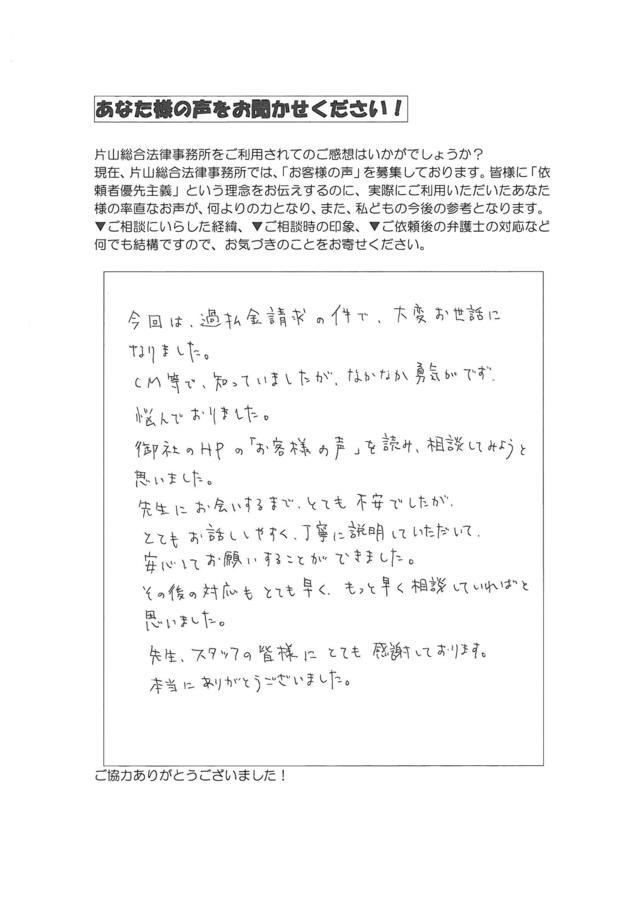 あなた様の声をお聞かせください！
片山総合法律事務所をご利用されてのご感想はいかがでしょうか？
現在、片山総合法律事務所では、「お客様の声」を募集しております。皆様に「依
頼者優先主義」という理念をお伝えするのに、実際にご利用いただいたあなた
様の率直なお声が、何よりの力となり、また、私どもの今後の参考となります。
▼ご相談にいらした経緯、▼ご相談時の印象、▼ご依頼後の弁護士の対応など
何でも結構ですので、お気づきのことをお寄せください。
今回は、過払金請求の件で、大変お世話に
なりました。
CM等で、知っていましたが、なかなか勇気がでず、
悩んでおりました。
御社のHPの「お客様の声」を読み、相談してみようと
思いました。
先生にお会いするまで、とても不安でしたが、
とてもお話ししやすく、丁寧に説明していただいて、
安心してお願いすることができました。
その後の対応もとても早く、もっと早く相談していればと
思いました。
先生、スタッフの皆様にとても感謝しております。
本当にありがとうございました。
ご協力ありがとうございました！